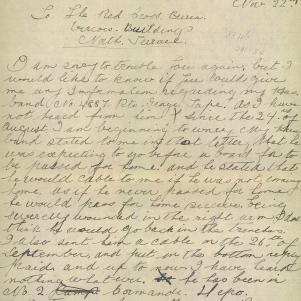 Nov 22nd
To The Red Cross Bureau
Verco's Buildings
Nth. Terrace.
I am sorry to trouble you again, but I
would like to know if you would give
me any Information regarding my Hus-
band (No. 4887 Pte. George Tape. as I have
not heard from him since the 24th of
August I am beginning to worry My Hus
band stated to me in that letter, that he
was expecting to go before a board for to
be passed for home. and he stated that
he would cable to me if he was not coming
home, as if he never passed for home
he would pass for home service. being
severely wounded in the right arm I dont
think he would go back in the trenches.
I also sent him a cable on the 26th of
September, and put on the bottom reply
paid, and up to now I have heard
nothing whatever. he has been in
No. 2 Camp Command Depo.